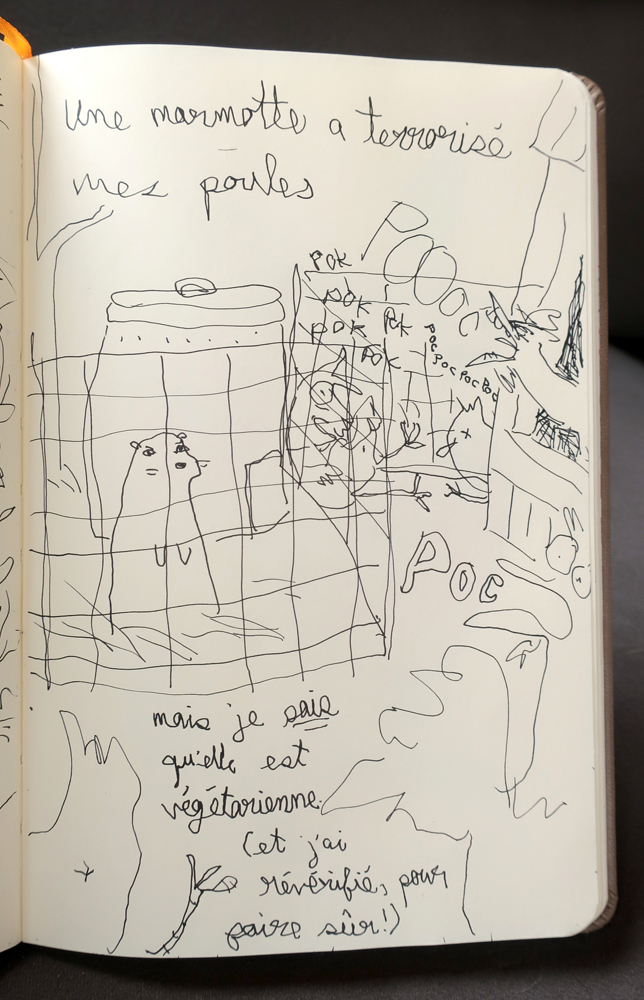 Une marmotte a terrorisé
mes poules
POK
POK
POK
POK
POK
POOOoc
Poc
Poc Poc Poc Poc
POC
mais je sais
qu'elle est
végétarienne
(et j'ai
révérifié, pour
faire sûr!)